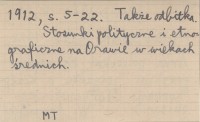 1912, s. 5-22. Także odbitka.
Stosunki polityczne i etno-
graficzne na Orawie w wiekach
średnich.
MT